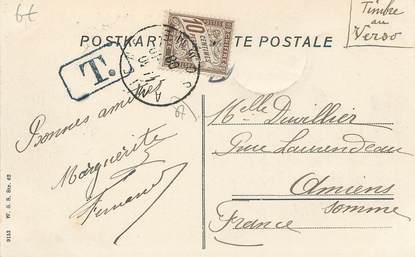 6t
Timbre
au
Verso
POSTKAR TE POSTALE
T.
10
CENTIMES
Bonnes amitiés
Marguerite
Fernand
Melle Duvillier
Rue Laurendeau
Amiens
Somme
France
9113 W. S. S. Sts. 62